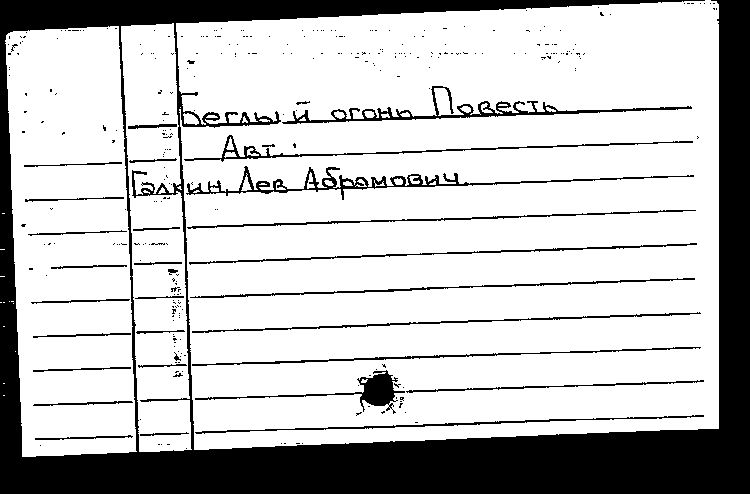 Беглый огонь Повесть
Авт.:
Галкин, Лев Абрамович.